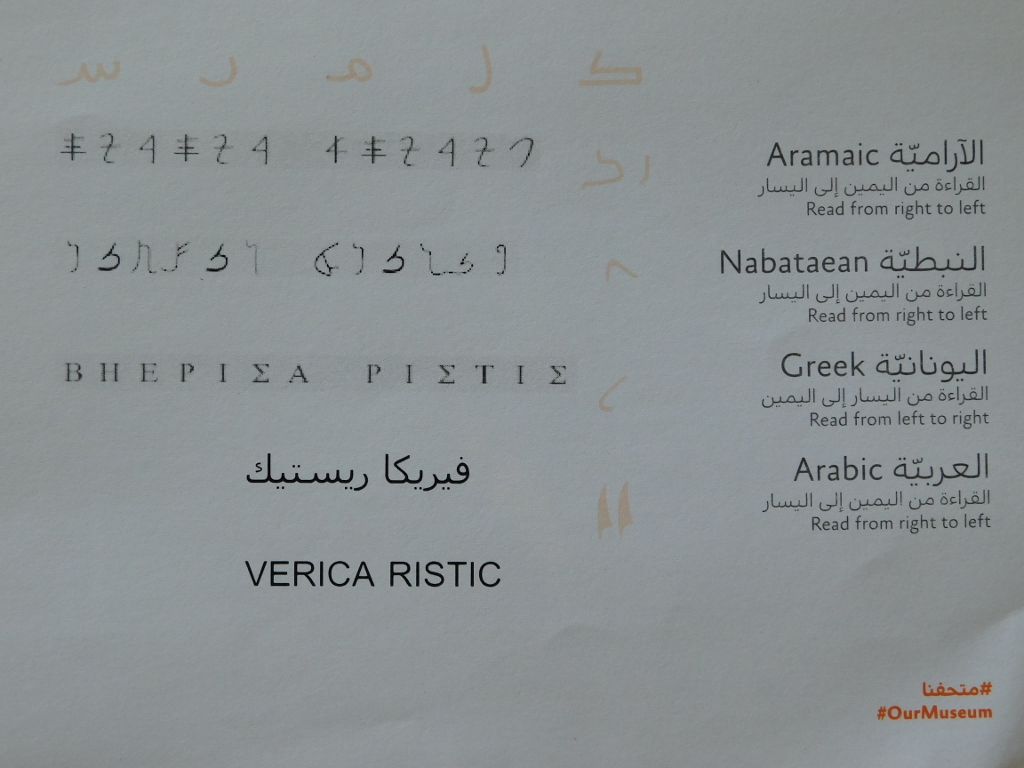 الآراميّة Aramaic
القراءة من اليمين إلى اليسار
Read from right to left
النبطيّة Nabataean
القراءة من اليمين إلى اليسار
Read from right to left
ΒΗΕΡΙΣΑ ΡΙΣΤΙΣ
اليونانيّة Greek
القراءة من اليسار إلى اليمين
Read from left to right
فيريكا ريستيك
العربيّة Arabic
القراءة من اليمين إلى اليسار
Read from right to left
VERICA RISTIC
#متحفنا
#OurMuseum